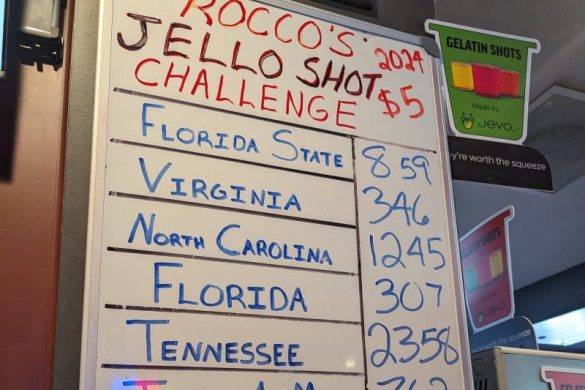 ROCCO'S 2024
JELLO SHOT
CHALLENGE $5
FLORIDA STATE 859
VIRGINIA 346
NORTH CAROLINA 1245
FLORIDA 307
TENNESSEE 2358
GELATIN SHOTS
Made by
Jevo.
they're worth the squeeze
GELATIN SHOTS
Made by
Jevo.
GELATIN SHOTS